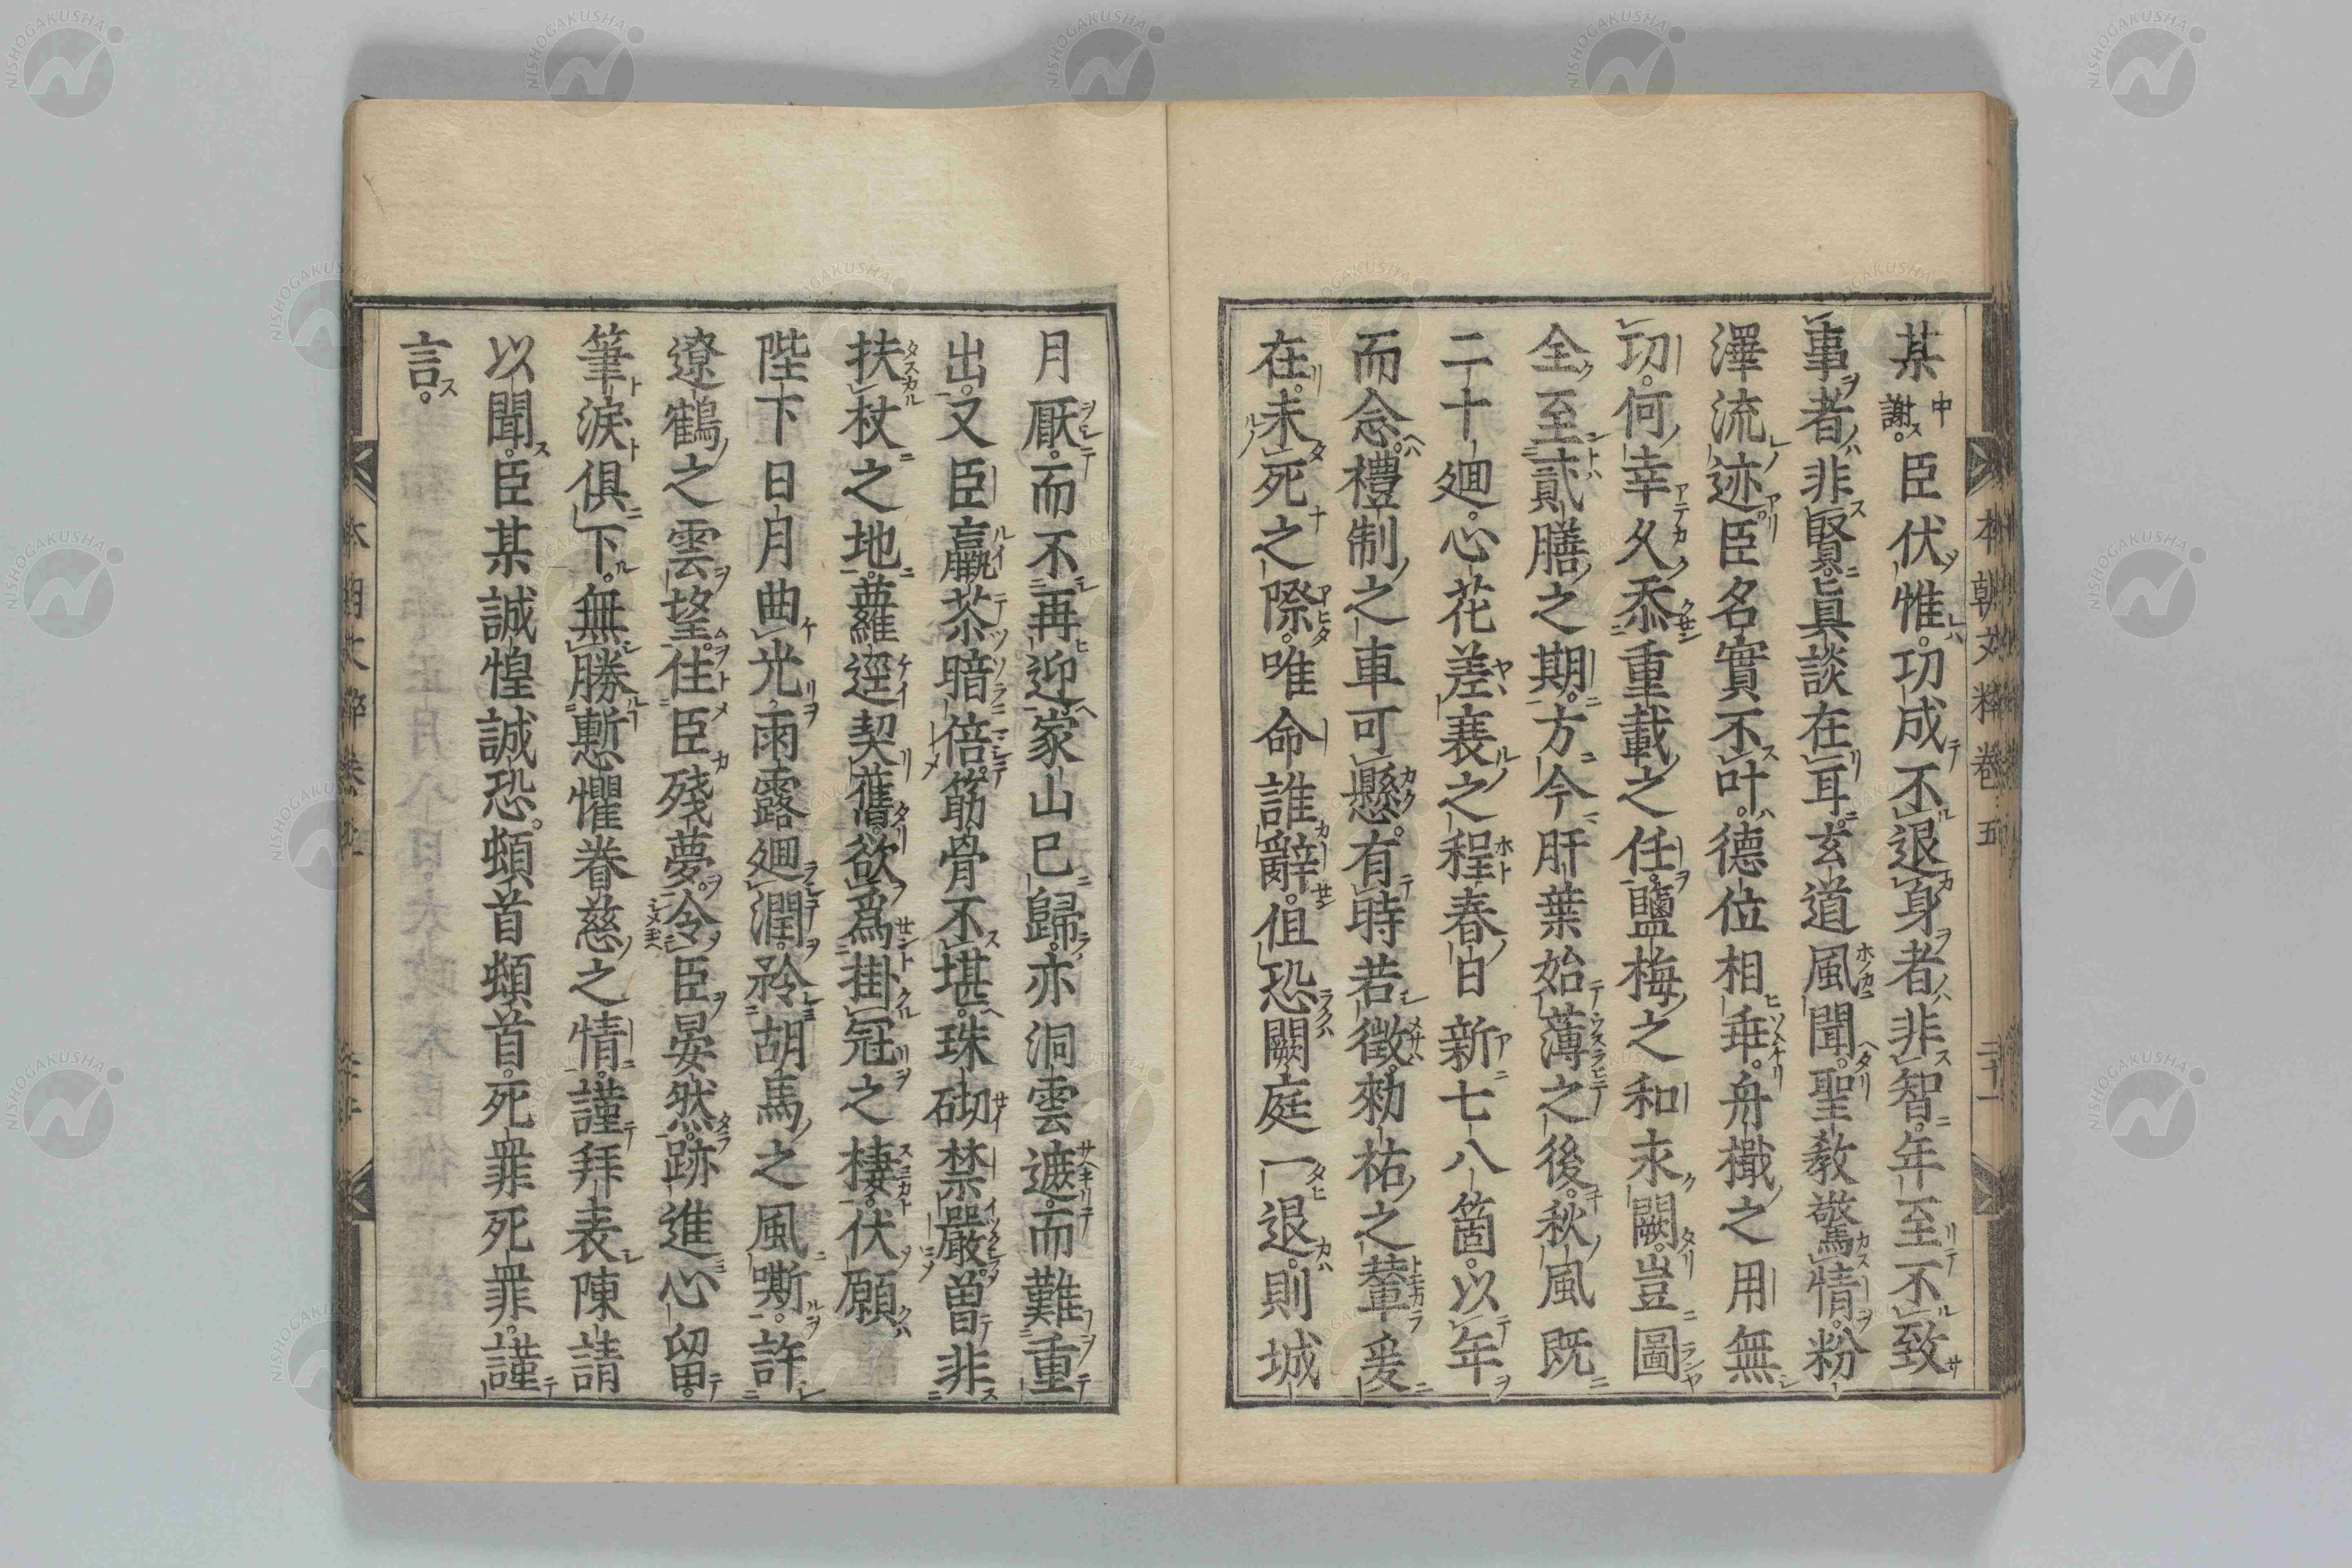 某中謝。臣伏惟。功成不退身者非智。年至不致
事者非賢。眞談在耳。玄道風聞。聖教驚情。粉
澤流迹。臣名實不叶。德位相乖。舟檝之用無
切。何幸久忝重載之任。鹽梅之和永闕。豈圖
全至貳膳之期。方今肝葉始薄之後。秋風既
二十廻。心花差衰之程。春日新七八箇。以年
而念。禮制之車可懸。有時若徴。勅祐之輦爰
在。未死之際。唯命誰辭。但恐闕庭一退。則城
月厭。而不再迎家山巳歸。亦洞雲遮。而難重
出。又臣羸苶暗倍。筋骨不堪。珠砌禁嚴。曽非
扶杖之地。蘿逕契舊。欲爲掛冠之棲。伏願
陛下日月曲光。雨露廻潤。矜胡馬之風嘶。許
遼鶴之雲望。住臣殘夢。令臣晏然。跡進心留。
筆涙倶下。無勝慙懼眷慈之情。謹拜表陳請
以聞。臣某誠惶誠恐。頓首頓首。死罪死罪。謹
言。
本朝文粹卷五
二十一
NISHOGAKUSHA